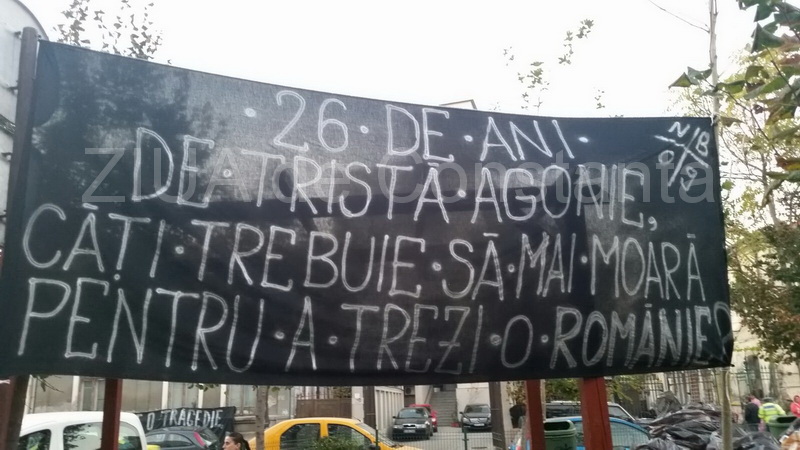 ·26·DE·ANI·
DE·TRISTĂ·AGONIE,
CÂȚI·TREBUIE·SĂ·MAI·MOARĂ
PENTRU·A·TREZI·O·ROMÂNIE?
N B
C 9
ZIUA de Constanta
O TRAGEDIE,